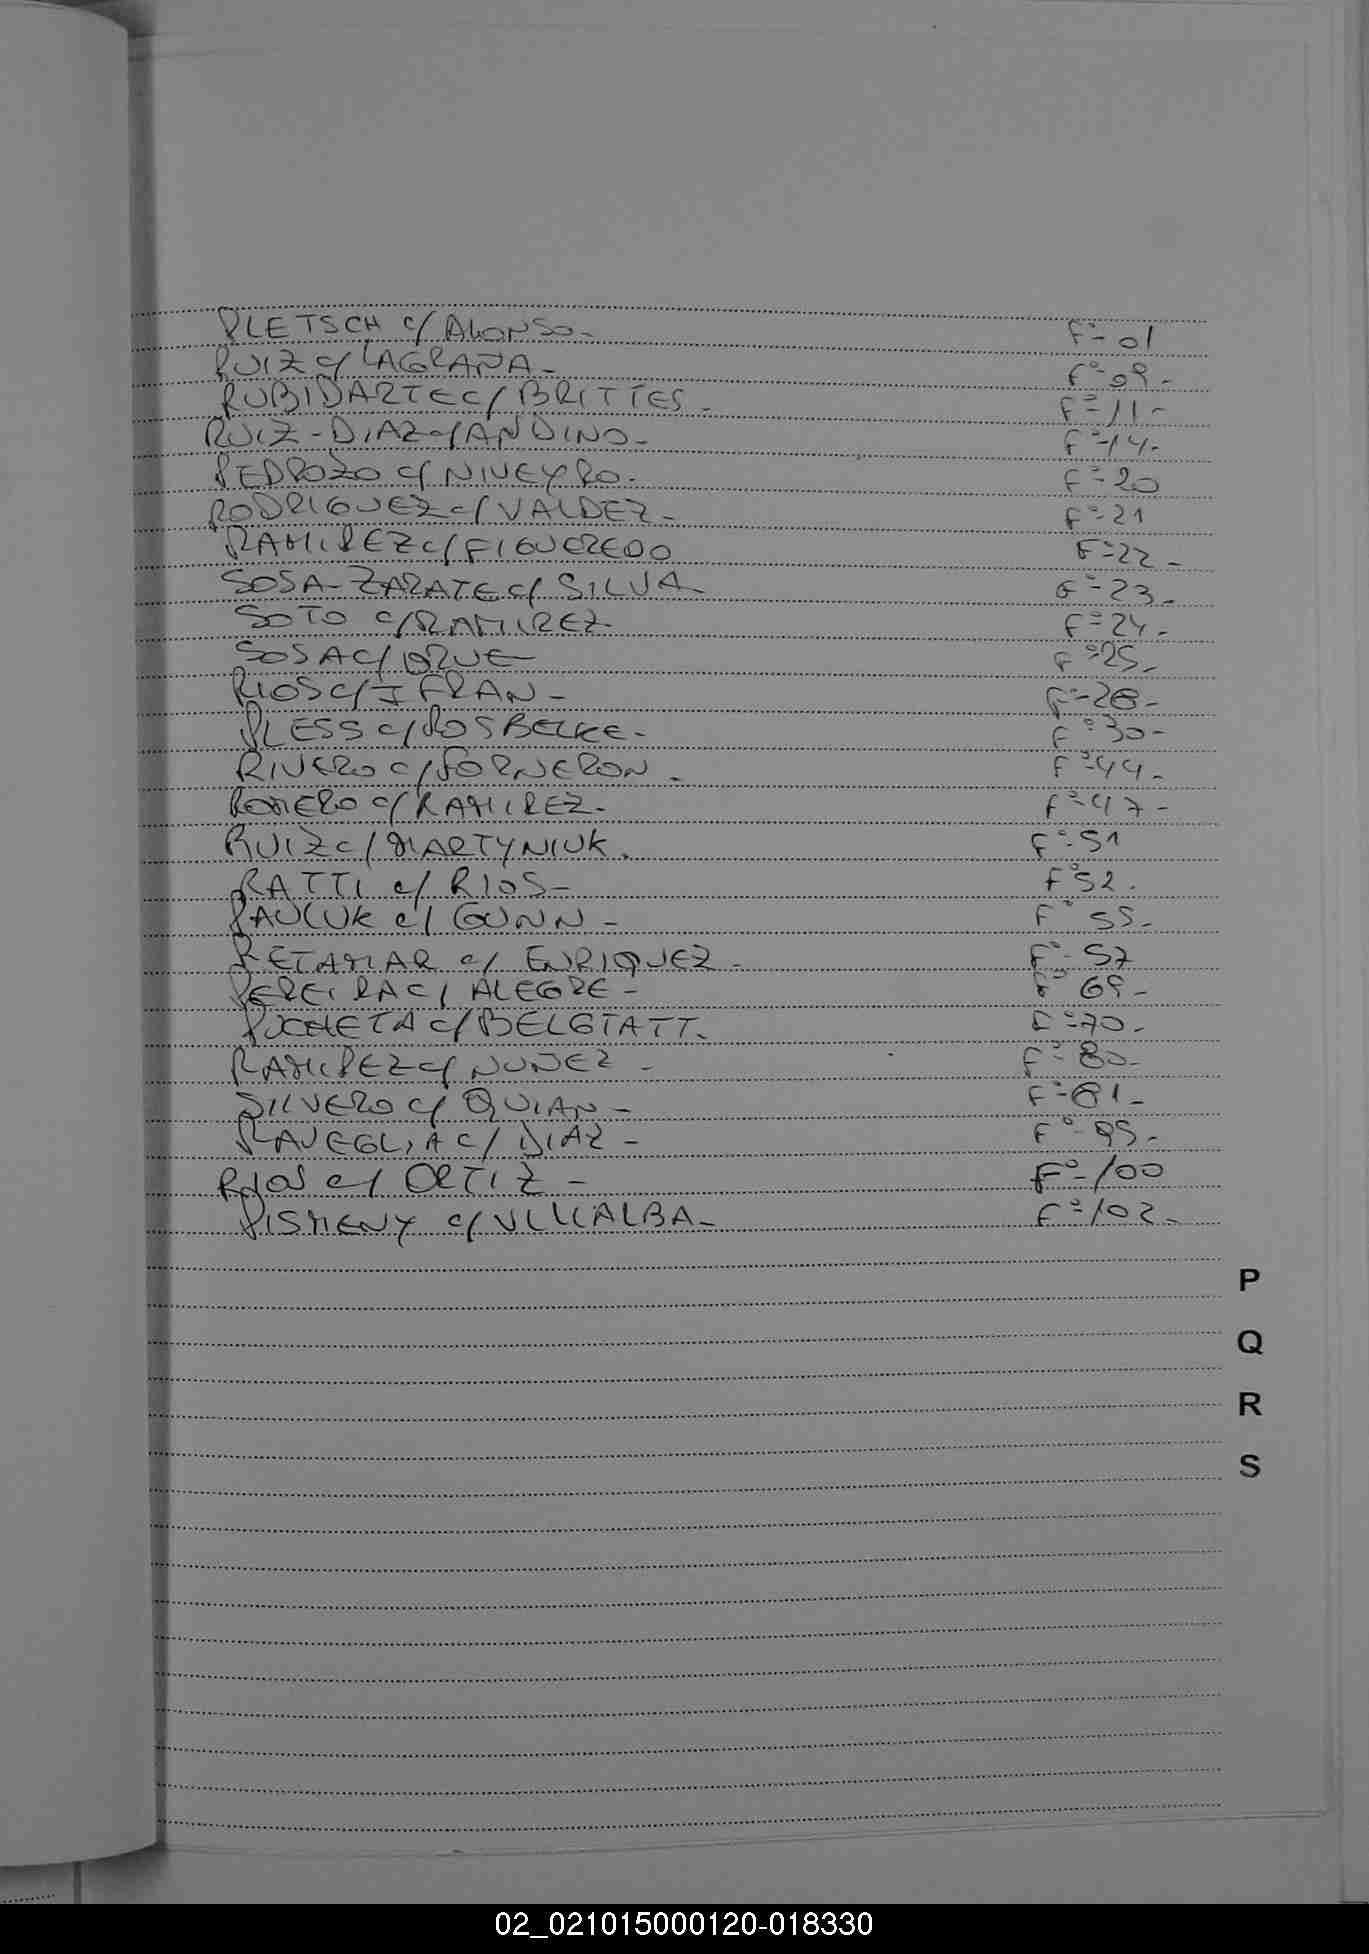 PLETSCH c/ ALONSO- F°- 01
RUIZ c/ LAGRAÑA- F°-09-
RUBIDARTE c/ BRITTES- F°-11-
RUIZ-DIAZ c/ ANDINO- F°-14-
PEDROZO c/ NIVEYRO. F°-20
RODRIGUEZ c/ VALDEZ- F°-21
RAMIREZ c/ FIGUEREDO F°-22-
SOSA-ZARATE c/ SILVA- F°-23-
SOTO c/ RAMIREZ- F°-24-
SOSA c/ ORUE- F°-25-
RIOS c/ IFRAN- F°-28-
PLESS c/ ROSBELKE- F°-30-
RIVERO c/ FORNERON- F°-44-
ROMERO c/ RAMIREZ- F°-47-
RUIZ c/ MARTYNIUK. F°-51
RATTI c/ RIOS- F°52.
PAULUK c/ GUNN- F° 55-
RETAMAR c/ ENRIQUEZ- F°-57
PEREIRA c/ ALEGRE- F° 69-
PUCHETA c/ F°-70-
RAMIREZ c/ NUÑEZ- F°-80-
SILVERO c/ QUIAN- F°-81-
RAVEGLIA c/ DIAZ- F°-95-
c/ ORTIZ- F°-100
PISMENY c/ VILLALBA- F°-102-
P
Q
R
S
02_021015000120-018330